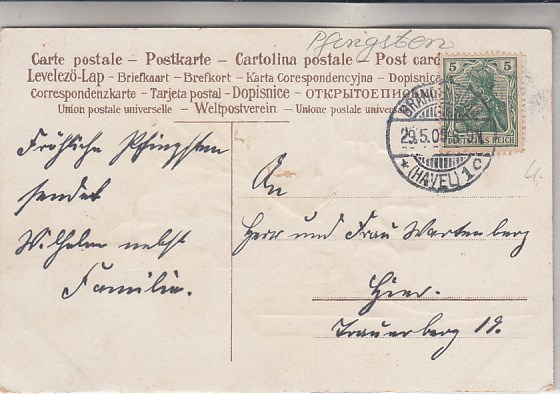 Pfingsten
Carte postale – Postkarte – Cartolina postale – Post card
Levelező-Lap – Briefkaart – Brefkort – Karta Corespondencyjna – Dopisnice
Correspondenzkarte – Tarjeta postal – Dopisnice – ОТКРЫТОЕ ПИСЬМО
Union postale universelle – Weltpostverein – Unione postale universale
5 5
DEUTSCHES REICH
BRANDENBURG
29.5.09. 8-9N.
* (HAVEL) 1 c
Fröhliche Pfingsten
sendet
Wilhelm nebst
Familie.
An
Herr und Frau Wartenberg
Hier.
Trauerberg 19.